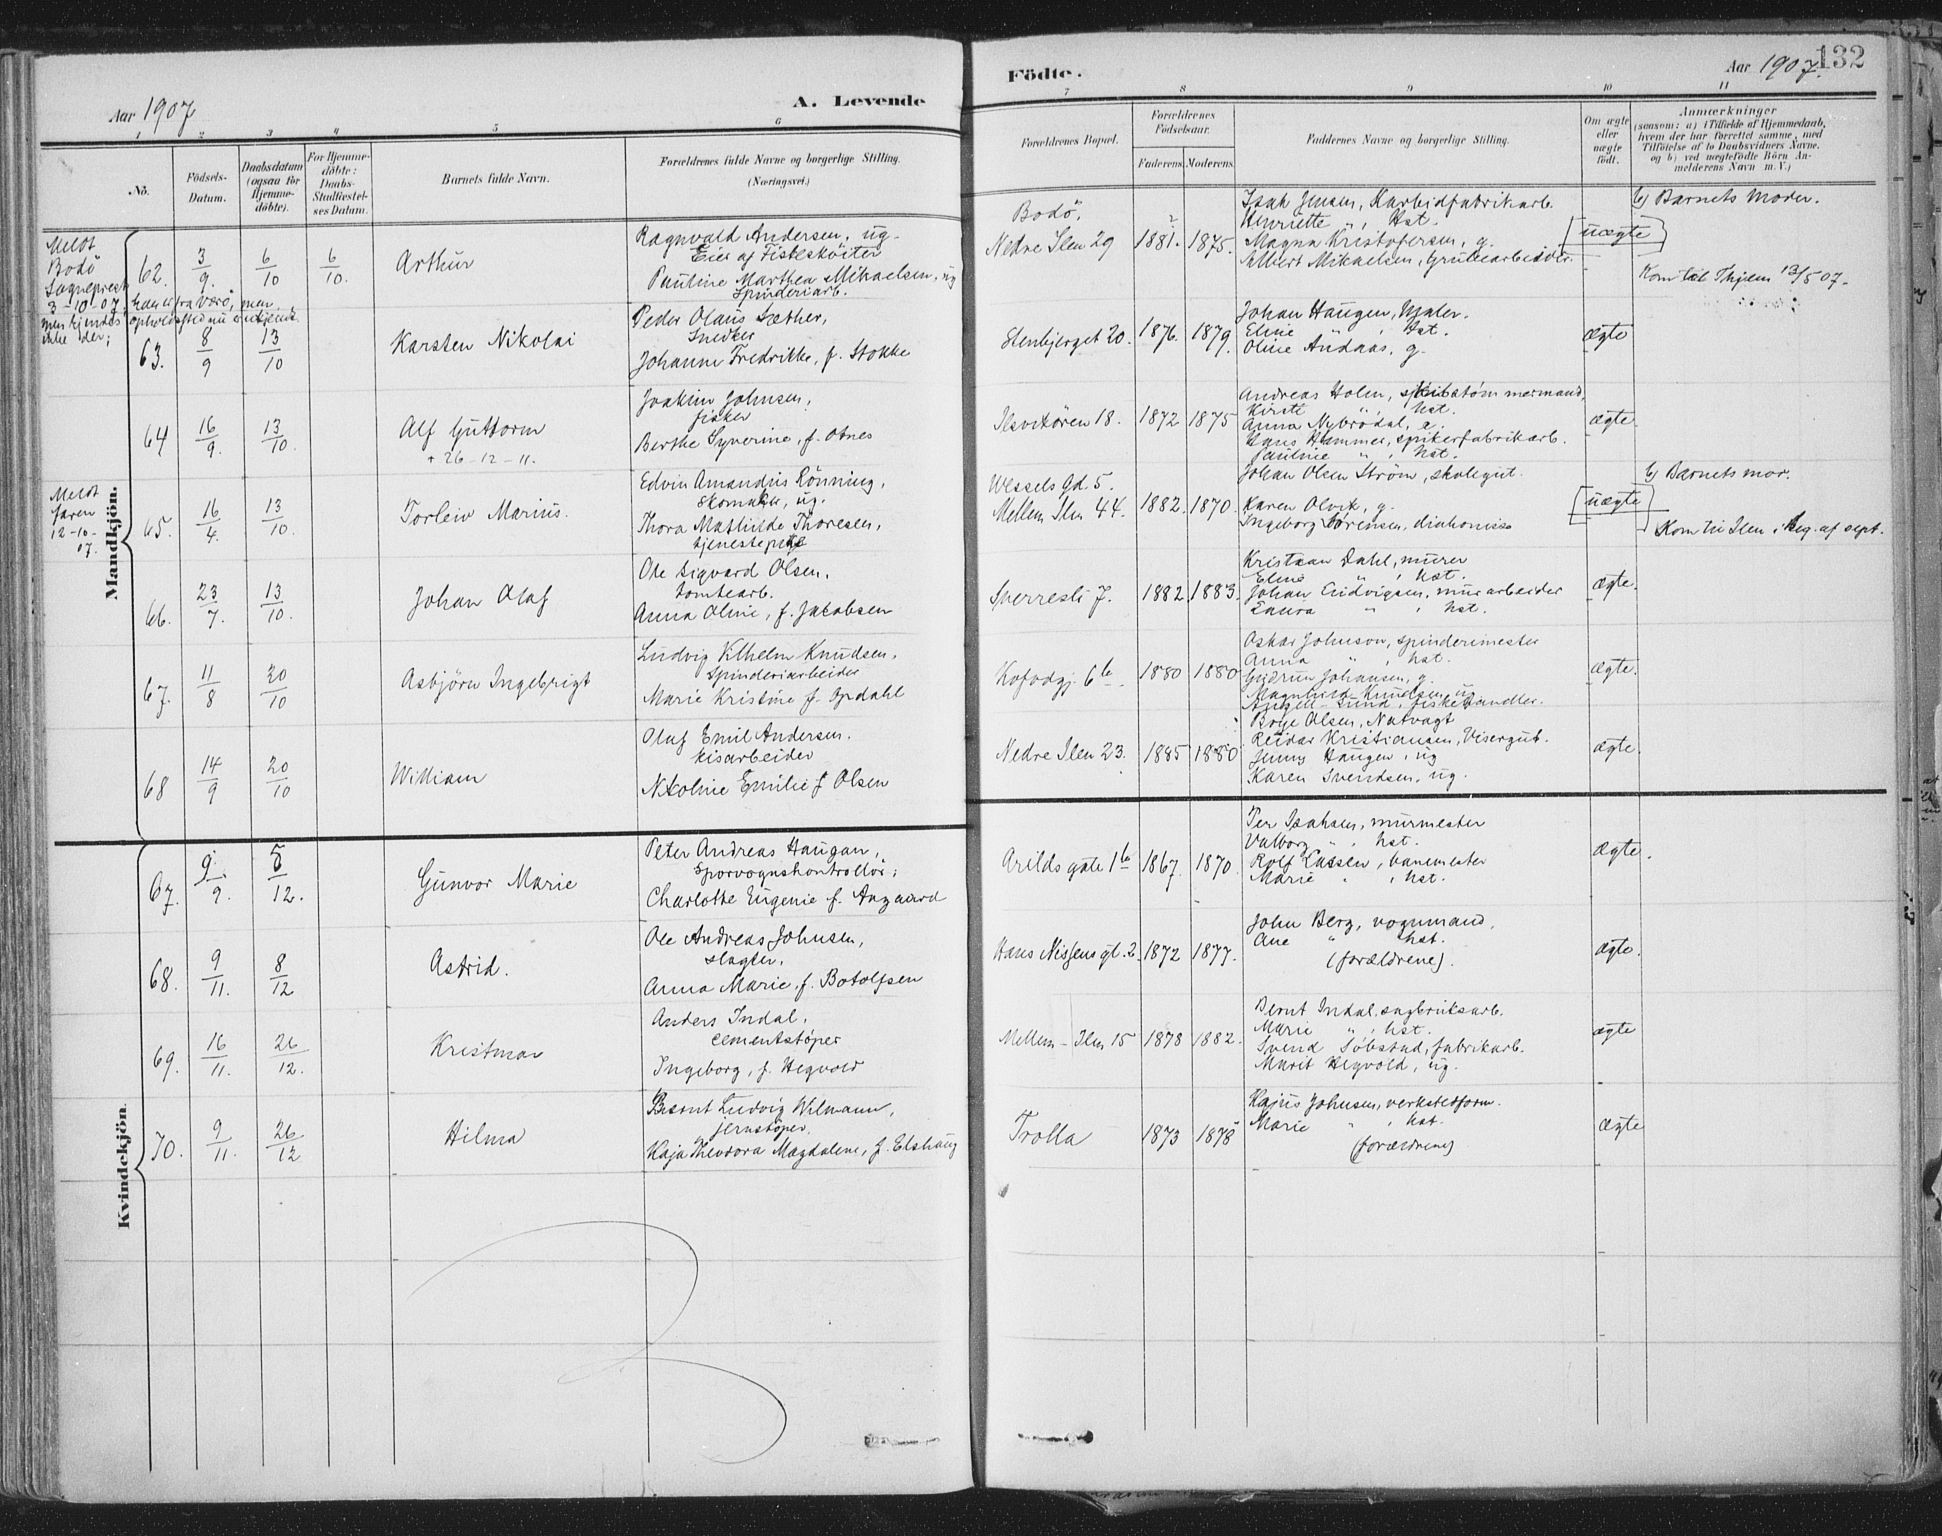 Aar 1907
A. Levende
Födte.
Aar 1907.
132
1 2 3 4 5 6
7 8 9 10 11
No.
Födsels-
Datum.
Daabsdatum
(ogsaa for
Hjemme-
döbte).
For Hjemme-
döbte:
Daabs-
Stadfæstel-
ses Datum.
Barnets fulde Navn.
Forældrenes fulde Navne og borgerlige Stilling.
(Næringsvei.)
Forældrenes Bopæl.
Forældrenes
Födselsaar.
Faderens. Moderens.
Faddernes Navne og borgerlige Stilling.
Om ægte
eller
uægte
födt.
Anmærkninger
(saasom: a) i Tilfælde af Hjemmedaab,
hvem der har forrettet samme, med
Tilföielse af to Daabsvidners Navne,
og b) ved uægtefödte Börn An-
melderens Navn m. V.)
Mandkjön.
Meldt
Bodö
Sogneprest
3-10-07
62. 3/9. 6/10 6/10. Arthur
Ragnvald Andersen, ug.
Eier af Fiskesköiter
Pauline Marthea Mikaelsen, ug
Spinderiarb.
Bodö.
Nedre Ilen 29
1881. 1875.
Isak Jensen, Karbidfabrikarb.
Henriette " , Hst.
Magna Kristofersen, g.
Albert Mikaelsen, Grubearbeider.
uægte
b) Barnets Moder.
Kom til Thjem 13/5 07.
63. 8/9 13/10 Karsten Nikolai
Peder Olaus Sæther,
Snedker
Johanne Fredrikke, f. Stokke
Stenbjerget 20. 1876. 1879.
Johan Haugen, Maler.
Eline " , Hst.
Oline Andaas, g.
ægte
64 16/9. 13/10. Alf Guttorm
+ 26-12-11.
Joakim Johnsen,
fisker
Berthe Syverine, f. Otnes
Ilsvikören 18. 1872 1875
Andreas Holm, skibstømmermand,
Kirste " , hst.
Anna Nybrödal, e.
Hans Hammer, spikerfabrikarb.
Pauline " , hst.
ægte.
Meldt
faren
12-10-
07.
65. 16/4. 13/10 Torleiv Marius.
Edvin Amandus Rönning,
Skomaker, ug.
Thora Mathilde Thoresen,
tjenestepike
Wessels gd. 5.
Mellem Ilen 44. 1882. 1870.
Johan Olsen Ström, skolegut.
Karen Olvik, g.
Ingeborg Sörensen, diakonisse
uægte
b) Barnets mor.
Kom til Ilen i beg. af sept.
66. 23/7. 13/10. Johan Olaf
Ole Sigvard Olsen,
Tomtearb.
Anna Oline, f. Jakobsen
Sverresli 7. 1882. 1883.
Kristian Dahl, murer
Eline " , hst.
Johan Ludvigsen, murarbeider
Laura " , hst.
ægte.
67. 11/8 20/10 Asbjörn Ingebrigt
Ludvig Vilhelm Knudsen,
Spinderiarbeider
Marie Kristine f. Opdahl
Kofodgj. 6b 1880 1880
Oskar Johnson, spinderimester
Anna " , hst.
Gudrun Johansen, g.
Magnhild Knudsen, ug.
ægte.
68 14/9 20/10 William
Olaf Emil Andersen.
kisarbeider
Nikoline Emilie f Olsen
Nedre Ilen 23. 1885 1880
August Lund, fiskehandler.
Boye Olsen, Natvagt
Reidar Kristiansen, Visergut.
Jenny Haugen, ug
Karen Svendsen, ug.
ægte.
Kvindekjön.
67. 9/9. 5/12. Gunvor Marie
Peter Andreas Haugan,
Sporvognskontrollör;
Charlotte Eugenie f. Aagaard
Arilds gate 1b 1867. 1870.
Per Isaksen, murmester
Valborg " , hst.
Rolf Lassen, banemester
Marie " , hst.
ægte.
68. 9/11. 8/12 Astrid.
Ole Andreas Johnsen,
slagter.
Anna Marie, f. Botolfsen
Hans Nissens gt. 2. 1872 1877.
John Berg, vognmand,
Ane " hst.
(forældrene).
ægte.
69. 16/11. 26/12. Kristmar
Anders Indal,
cementstöper
Ingeborg, f. Hegvold
Mellem-Ilen 15 1878 1882.
Bernt Indal, sagbruksarb.
Marie " , hst.
Svend Söbstad, fabrikarb.
Marit Hegvold, ug.
ægte
70. 9/11. 26/12 Hilma
Bernt Ludvig Wilmann,
jernstöper.
Kaja Theodora Magdalene, f. Elshaug
Trolla 1873 1878
Kajus Johnsen, verkstedform.
Marie " , hst.
(forældrene)
ægte